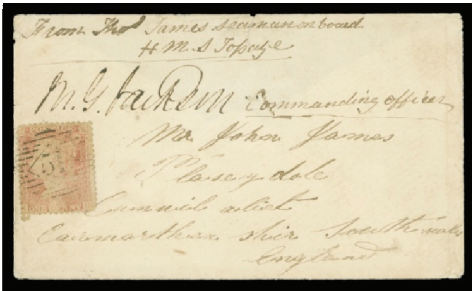 From Thos James seaman on board
H M S Topaze
M. G. Jackson Commanding officer
Mr John James
Plasey dole
Cumwil
Carmarthen shir South wales
England